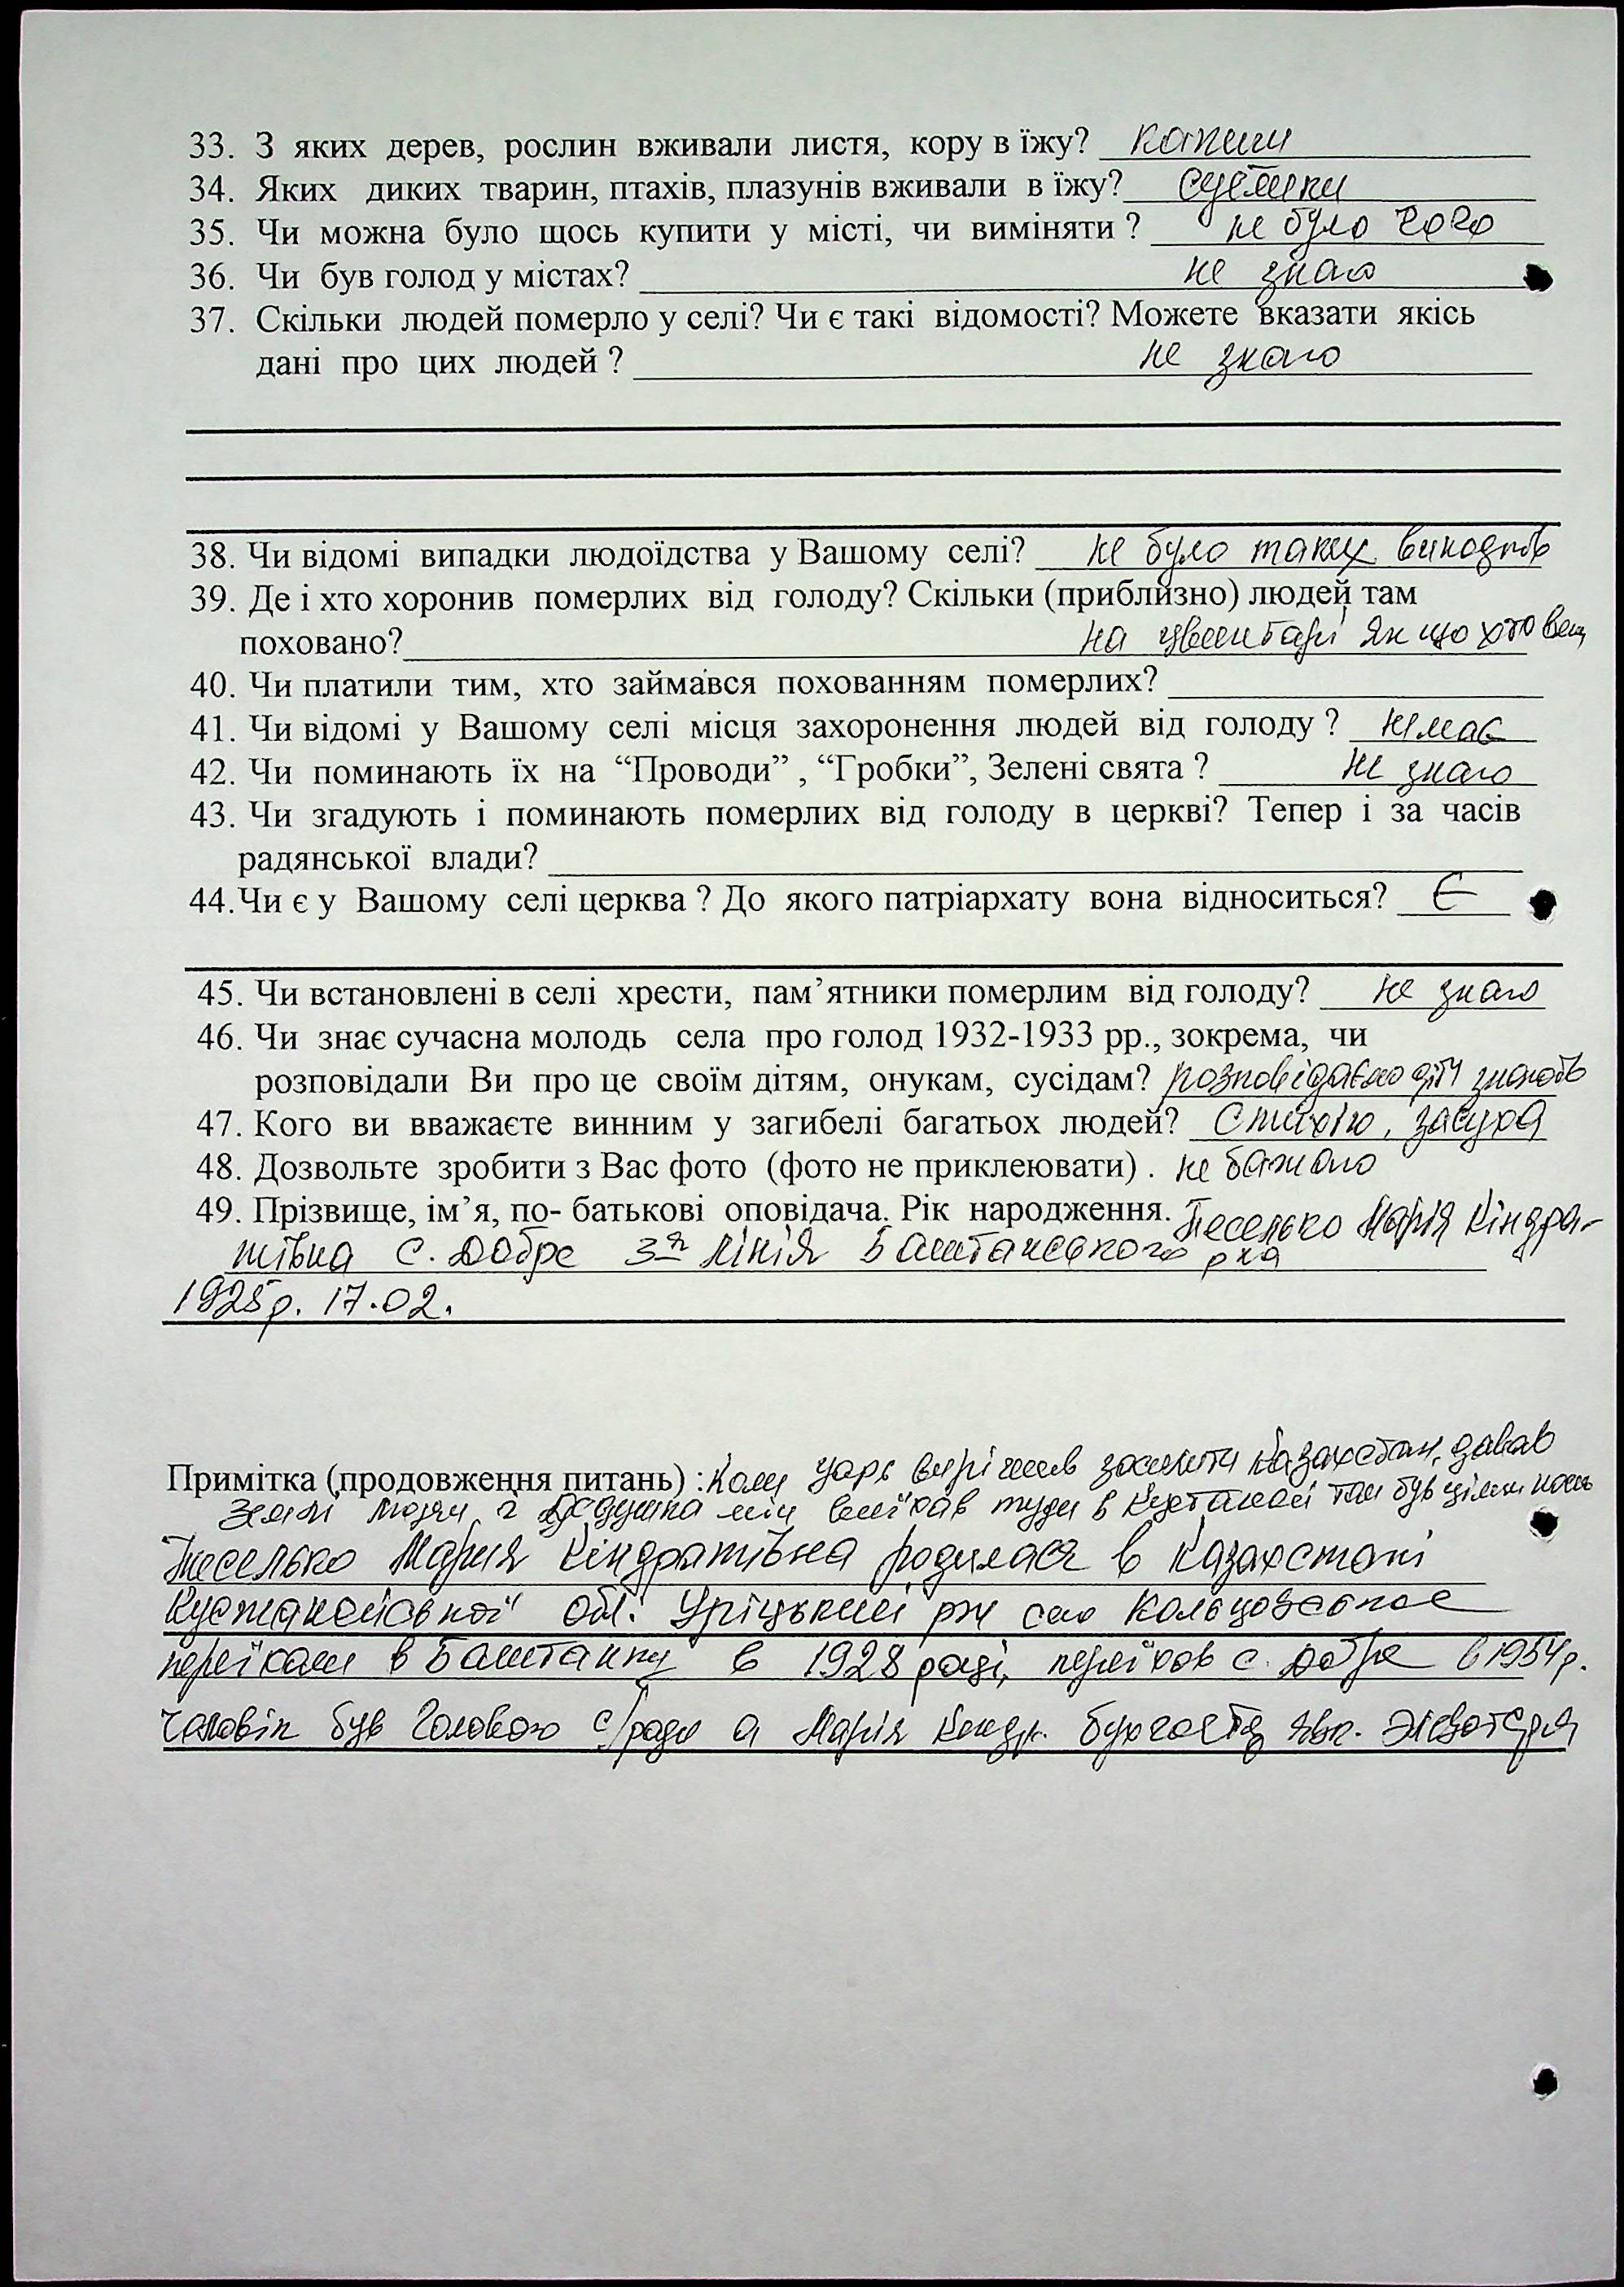 33. З яких дерев, рослин вживали листя, кору в їжу? капиш
34. Яких диких тварин, птахів, плазунів вживали в їжу? суслики
35. Чи можна було щось купити у місті, чи виміняти ? не було чого
36. Чи був голод у містах? не знаю
37. Скільки людей померло у селі? Чи є такі відомості? Можете вказати якісь
дані про цих людей ? не знаю
38. Чи відомі випадки людоїдства у Вашому селі? не було таких випадків
39. Де і хто хоронив померлих від голоду? Скільки (приблизно) людей там
поховано? на цвинтарі якщо хто
40. Чи платили тим, хто займався похованням померлих?
41. Чи відомі у Вашому селі місця захоронення людей від голоду ? немає
42. Чи поминають їх на “Проводи” , “Гробки”, Зелені свята ? не знаю
43. Чи згадують і поминають померлих від голоду в церкві? Тепер і за часів
радянської влади?
44.Чи є у Вашому селі церква ? До якого патріархату вона відноситься? Є
45. Чи встановлені в селі хрести, пам’ятники померлим від голоду? не знаю
46. Чи знає сучасна молодь села про голод 1932-1933 рр., зокрема, чи
розповідали Ви про це своїм дітям, онукам, сусідам? розповідаємо діти знають
47. Кого ви вважаєте винним у загибелі багатьох людей? Стихію, засуха
48. Дозвольте зробити з Вас фото (фото не приклеювати) . не бажаю
49. Прізвище, ім’я, по- батькові оповідача. Рік народження. Теселько Марія Кіндра-
тівна с. Добре 3я лінія Баштанського рна
1925р. 17.02.
Примітка (продовження питань) : Коли царь вирішив заселити Казахстан, давав
землі людям і Дедушка мій виїхав туди в Кустанай там був
Теселько Мария Кіндратівна родилася в Казахстані
Кустанайської обл. Уріцький рн село Кольцовское
переїхали в Баштанку в 1928 році, переїхав с. Добре в 1954р.
Чоловік був Головою с/ради а Марія Кіндр. бухгалтер